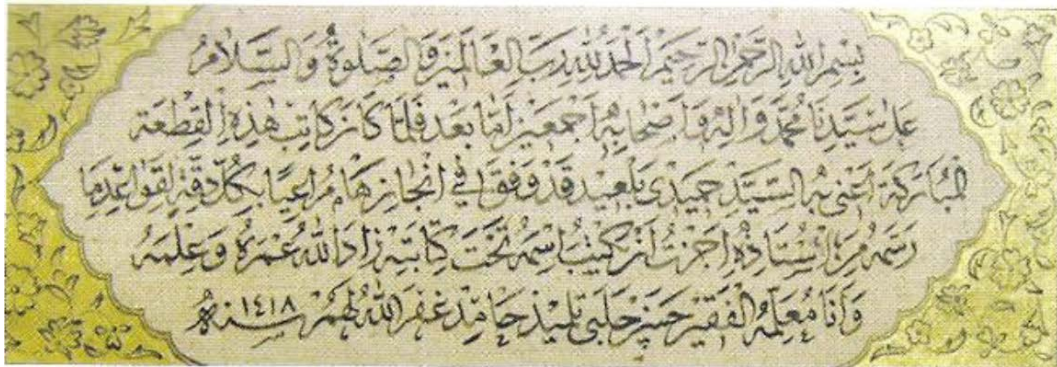 بِسْمِ اللهِ الرَّحْمٰنِ الرَّحِيْمِ اَلْحَمْدُ لِلّٰهِ رَبِّ الْعَالَمِيْنَ وَالصَّلٰوةُ وَالسَّلَامُ
عَلٰى سَيِّدِنَا مُحَمَّدٍ وَاٰلِهِ وَاَصْحَابِهِ اَجْمَعِيْنَ اَمَّا بَعْدُ فَلَمَّا كَانَ كَاتِبُ هٰذِهِ الْقِطْعَةِ
الْمُبَارَكَةِ اَعْنِي بِهِ السَّيِّدَ حَمِيْدِي بَلْعِيْد قَدْ وَفَّقَ فِي اِنْجَازِهَا مُرَاعِيًا بِكُلِّ دِقَّةٍ لِقَوَاعِدِ مَا
رَسَمَهُ مِنْ اُسْتَاذِهِ اَجَزْتُ اَنْ يَكْتُبَ اِسْمَهُ تَحْتَ كِتَابَتِهِ زَادَ اللهُ عُمْرَهُ وَعِلْمَهُ
وَاَنَا مُعَلِّمُهُ الْفَقِيْرُ حَسَنْ چَلَبِي تِلْمِيْذُ حَامِدْ غَفَرَ اللهُ لَهُمْ سنه ١٤١٨ هـ